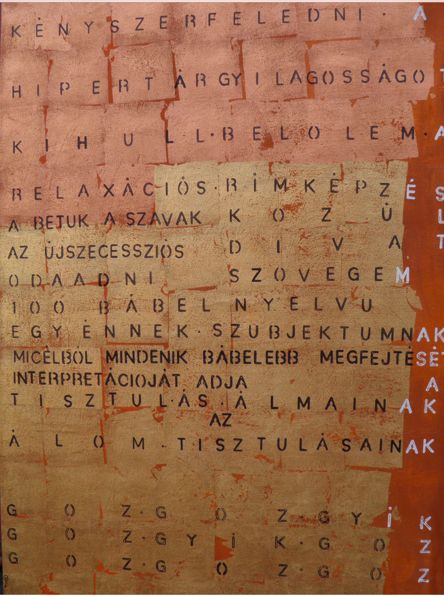 KÉNYSZERFELEDNI · A
HIPERTÁRGYILAGOSSÁGOT
KIHULL · BELOLEM · A
RELAXÁCIÓS · RÍMKÉPZÉS
A BETUK A SZAVAK KOZÜL
AZ ÚJSZECESSZIÓS DIVAT
ODAADNI SZOVEGEM
100 BÁBEL NYELVU
EGY ÉNNEK · SZUBJEKTUMNAK
MICÉLBÓL MINDENIK BÁBELEBB MEGFEJTÉSÉT
INTERPRETÁCIOJÁT ADJA A
TISZTULÁS · ÁLMAINAK
AZ
ÁLOM · TISZTULÁSAINAK
GOZ · GOZ · GYÍK
GOZ · GYÍK · GOZ
GOZ · GOZ · GOZ